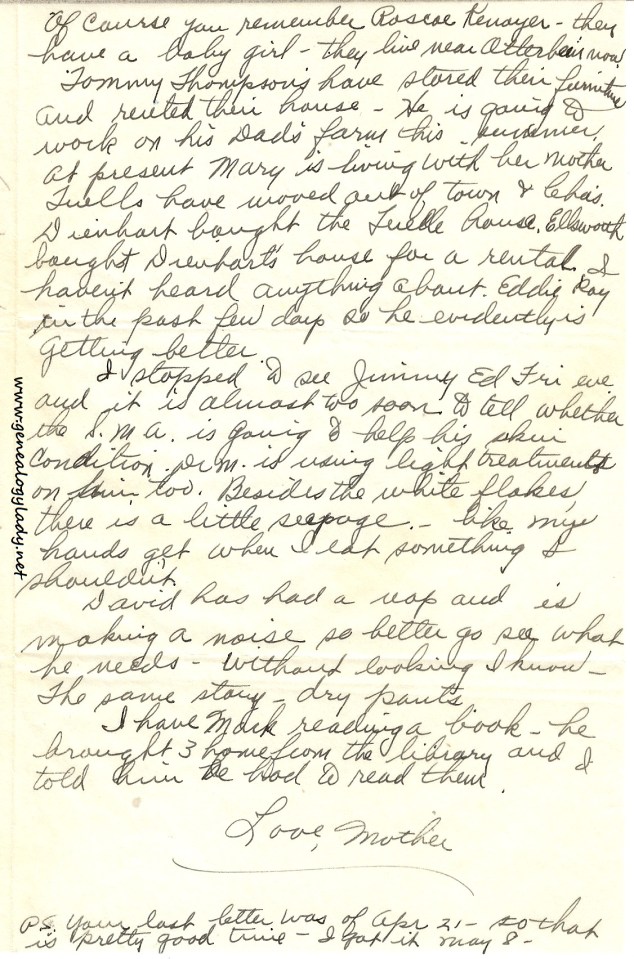 Of course you remember Roscoe Kenoyer - they
have a baby girl - they live near Otterbein now
Tommy Thompsons have stored their furniture
and rented their house - He is going to
work on his Dad's farm this summer,
at present Mary is living with her mother
Tuells have moved out of town & Chas.
Dienhart bought the Tuelle House. Ellsworth
bought Dienhart's house for a rental. I
haven't heard anything about Eddie Ray
in the past few days so he evidently is
getting better.
I stopped to see Jimmy Ed Fri eve
and it is almost too soon to tell whether
the S.M.A. is going to help his skin
condition. Dr M. is using light treatments
on him too. Besides the white flakes,
there is a little seepage - like my
hands get when I eat something I
shouldn't.
David has had a nap and is
making a noise so better go see what
he needs - without looking I know -
The same story - dry pants
I have Mark reading a book - he
brought 3 home from the library and I
told him he had to read them.
Love, Mother
P.S. Your last letter was of Apr 21 - so that
is pretty good time - I got it May 8 -
www.genealogylady.net